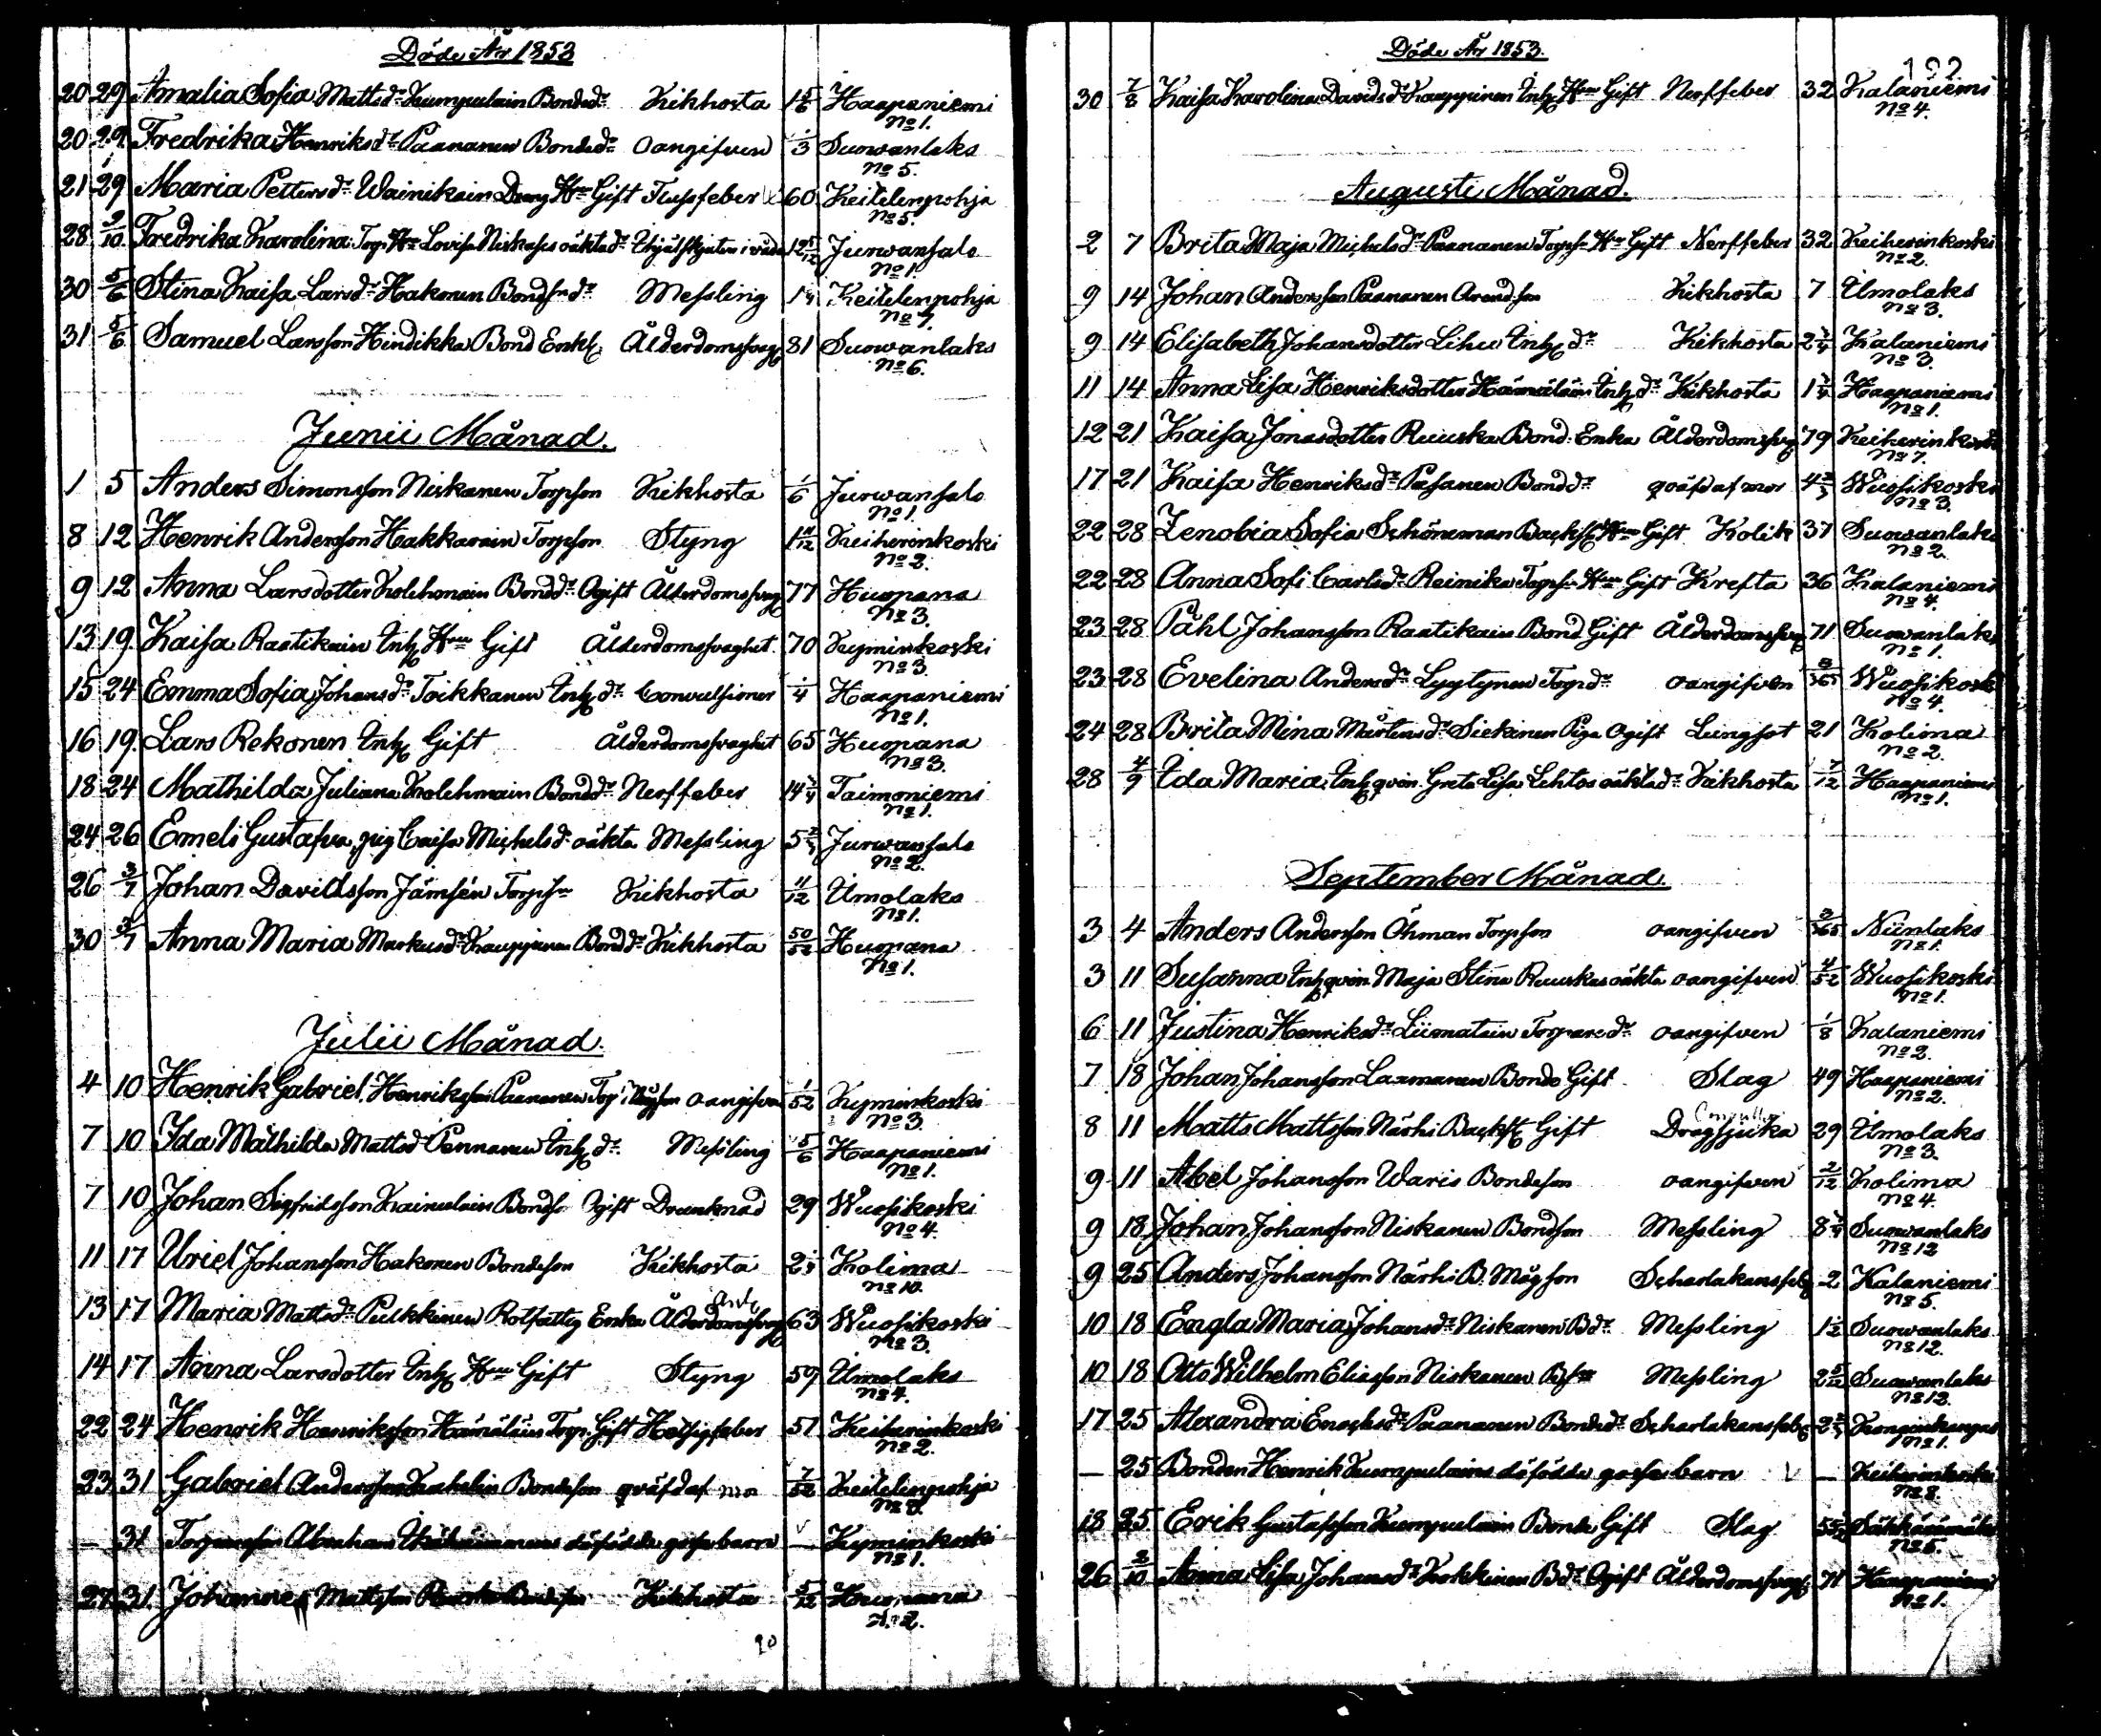 Döde År 1853
20 29 Amalia Sofia Mattsdr Kumpulain Bondedr Kikhosta 1 5/6 Haapaniemi
No 1.
20 29 Fredrika Henriksdr Paananen Bondedr oangifven 1/3 Suowanlaks
No 5.
21 29 Maria Pettersdr Wainikain Dreng Hru Gift Flussfeber 60 Keitelenpohja
No 5.
28 2/10 Fredrika Karolina Lovisa Niskases oäkta dr Jurwansalo
No 1.
30 5/6 Stina Kaisa Larsdr Hakonen Messling Keitelenpohja
No 7.
31 5/6 Samuel Larsson Hindikka Bond Enkl Ålderdomssvag 81 Suowanlaks
No 6.
Junii Månad.
1 5 Anders Simonsson Niskanen Torpson Kikhosta 1/6 Jurwansalo
No 1.
8 12 Henrik Andersson Hakkarain Torpson Styng Keiherinkoski
No 2.
9 12 Anna Larsdotter Kolehmain Bonddr Ogift Ålderdomssvag 77 Huopana
No 3.
13 19 Kaisa Raatikain Inh Hru Gift Ålderdomssvaghet 70 Kyminkoski
No 3.
15 24 Emma Sofia Johansdr Toikkanen Inh dr Convulsioner 1/4 Haapaniemi
No 1.
16 19. Lars Rekonen Inh Gift Ålderdomssvaghet 65 Huopana
No 3.
18 24 Mathilda Juliana Kolehmain Bonddr Nerffeber Taimoniemi
No 1.
24 26 Emeli Gustafva, pig Caisa Michelsdr oäkta Messling Jurwansalo
No 2.
26 3/7 Johan Davidsson Jämsén Kikhosta 11/12 Ilmolaks
No 1.
30 3/7 Anna Maria Markusdr Kauppinen Bonddr Kikhosta 50/52 Huopana
No 1.
Julii Månad.
4 10 Henrik Gabriel Henriksson Paananen oangifven 1/52 Kyminkoski
No 3.
7 10 Ida Mathilda Mattsdr Pennanen Inh dr Messling 5/6 Haapaniemi
No 1.
7 10 Johan Sigfridsson Kainulain Bondso Ogift Drunknad 29 Wuosikoski
No 4.
11 17 Uriel Johansson Hakonen Bondeson Kikhosta Kolima
No 10.
13 17 Maria Mattsdr Pulkkinen Rotfattig Enka Ålderdomssvag 63 Wuosikoski
No 3.
14 17 Anna Larsdotter Inh Hru Gift Styng 59 Ilmolaks
No 4.
22 24 Henrik Henriksson Hämäläin Torp. Gift Hetsigfeber 57 Keiherinkoski
No 2.
23 31 Gabriel Andersson Bondeson qväfd af 7/52 Keitelenpohja
No 8.
— 31 Abraham dödfödde gossebarn — Kyminkoski
No 1.
27 31. Johannes Mattsson Bondeson Kikhosta 5/12 Huopana
No 2.
20
Döde År 1853.
192
30 7/8 Kaisa Karolina Davidsdr Kauppinen Inh Hru Gift Nerffeber 32 Kalaniemi
No 4.
Augusti Månad.
2 7 Brita Maja Michelsdr Paananen Torps Hru Gift Nerffeber 32 Keiherinkoski
No 2.
9 14 Johan Andersson Paananen Arendson Kikhosta 7 Ilmolaks
No 3.
9 14 Elisabeth Johansdotter Lihu Inh dr Kikhosta Kalaniemi
No 3.
11 14 Anna Lisa Henriksdotter Hämäläin Inh dr Kikhosta Haapaniemi
No 1.
12 21 Kaisa Jonasdotter Ruuska Bond. Enka Ålderdomssvag 79 Keiherinkoski
No 7.
17 21 Kaisa Henriksdr Pasanen Bonddr qväfd af mor Wuosikoski
No 3.
22 28 Zenobia Sofia Schöneman Hru Gift Kolik 37 Suowanlaks
No 2.
22 28 Anna Sofi Carlsdr Reinika Torps Hru Gift Krefta 36 Kalaniemi
No 4.
23 28 Påhl Johansson Raatikain Bond Gift Ålderdomssvag 71 Suowanlaks
No 1.
23 28 Evelina Andersdr Lyytynen Torpdr oangifven Wuosikoski
No 4.
24 28 Brita Mina Mårtensdr Siekinen Piga Ogift Lungsot 21 Kolima
No 2.
28 4/9 Ida Maria, Inh qvin. Greta Lisa Lehtos oäkta dr Kikhosta 7/12 Haapaniemi
No 1.
September Månad.
3 4 Anders Andersson Öhman Torpson oangifven 3/365 Niinlaks
No 1.
3 11 Susanna Inh qvin Maja Stina Ruuskas oäkta oangifven 4/52 Wuosikoski
No 1.
6 11 Justina Henriksdr Liimatain Torparedr oangifven 1/8 Kalaniemi
No 2.
7 18 Johan Johansson Laamanen Bonde Gift Slag 49 Haapaniemi
No 2.
8 11 Matts Mattsson Närhi Gift Dragsjuka 29 Ilmolaks
No 3.
9 11 Abel Johansson Waris Bondeson oangifven 2/12 Kolima
No 4.
9 18 Johan Johansson Niskanen Bondson Messling Suowanlaks
No 12
9 25 Anders Johansson Närhi B. Mågson Scharlakansfeb 2 Kalaniemi
No 5.
10 18 Engla Maria Johansdr Niskanen Bdr Messling Suowanlaks
No 12.
10 18 Otto Wilhelm Eliasson Niskanen Messling Suowanlaks
No 12.
17 25 Alexandra Enochsdr Paananen Bondedr Scharlakansfeb Konginkangas
No 1.
— 25 Bonden Henrik Kumpulains dödfödde gossebarn — Keiherinkoski
No 8.
18 25 Erik Gustafsson Kumpulain Bonde Gift Slag
No 5.
26 2/10 Anna Lisa Johansdr Bdr Ogift Ålderdomssvag 71 Haapaniemi
No 1.